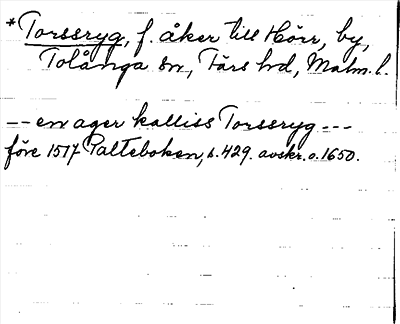 *Torssryg, f. åker till Hörr, by,
Tolånga sn, Färs hd, Malm. l.
-- en ager kalliss Torssryg ---
före 1517 Palteboken, s. 429. avskr. o. 1650.